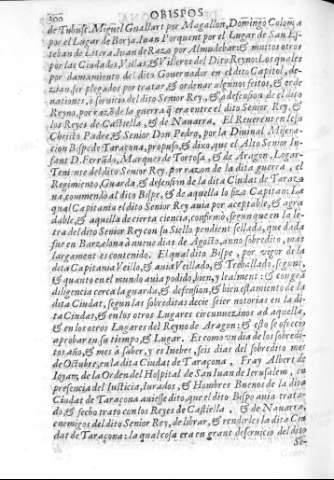 200 OBISPOS
de Tubise, Miguel Guallart por Magallon, Domingo Coloma
por el Lugar de Borja, Iuan Porquent por el Lugar de San Es-
teban de Litera, Iuan de Raza por Almudebar: & muitos otros
por las Ciudades, Villas, & Villeros del Dito Reyno: Los quales
por clamamiento del dito Governador en el dito Capitol, de-
vian ser plegados por tratar, & ordenar algunos feitos, & orde
nationes, a servicio del dito Senior Rey, & a defension de el dito
Reyno, por razon de la guerra q̃ era entre el dito Senior Rey, &
los Reyes de Castella, & de Navarra. El Reverent en Iesu
Christo Padre, & Senior Don Pedro, por la Divinal Misera-
cion Bispe de Taraçona, propuso, & dixo, que el Alto Senior In-
fant D. Ferrãdo, Marques de Tortosa, & de Aragon, Logar-
Teniente del dito Senior Rey, por razon de la dita guerra, el
Regimiento, Guarda, & defension de la dita Ciudat de Taraço
na, comendò al dito Bispe, & de aquella lo fizo Capitan: La
qual Capitania el dito Senior Rey avia por aceptable, & agra
dable, & aquella de cierta ciencia, confirmò, segun que en la le-
tra del dito Senior Rey con su Siello pendient sellada, que dada
fue en Barzelona à nueve dias de Agosto, anno sobredito, mas
largament es contenido. El qual dito Bispe, por vigor de la
dita Capitania Veilò, & avia Veillado, & Treballado, segunt,
& quanto en el mundo avia podido, bien, y lealment: & con grã
diligencia cerca la guarda, & defension, & bien estamiento de la
dita Ciudat, segun las sobreditas decie seier notorias en la di-
ta Ciudat, & en los otros Lugares circunvezinos ad aquella,
& en los otros Lugares del Reyno de Aragon: & esto se ofrecio
aprobar en su tiempo, & Lugar. Et como un dia de los sobredi-
tos año, & mes à saber, y es Iueves, seis dias del sobredito mes
de Octubre, en la dita Ciudat de Taraçona. Fray Albert de
Ioyan, de la Orden del Hospital de San Iuan de Ierusalem, en
presencia del Iusticia, Iurados, & Hombres Buenos de la dita
Ciudat de Taraçona aviesse dito, que el dito Bispo avia trata-
do, & fecho trato con los Reyes de Castiella, & de Navarra,
enemigos del dito Senior Rey, de librar, & renderles la dita Ciu
dat de Taraçona: la qual cosa era en grant deservicio del dito
Se-